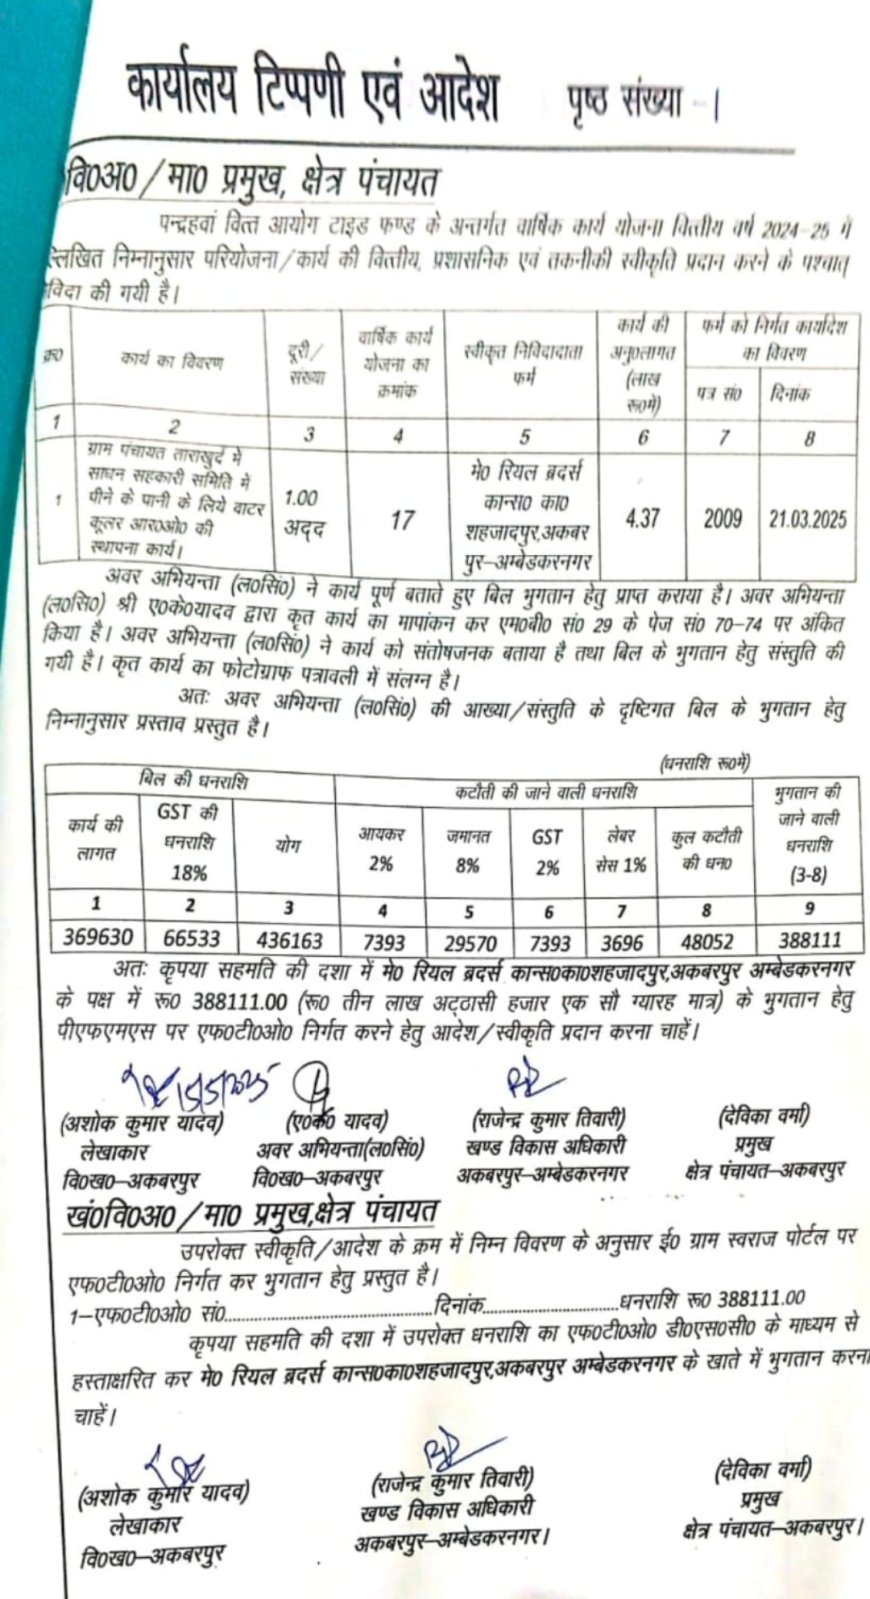 कार्यालय टिप्पणी एवं आदेश पृष्ठ संख्या - 1
वि0अ0 / मा0 प्रमुख, क्षेत्र पंचायत
पन्द्रहवां वित्त आयोग टाइड फण्ड के अन्तर्गत वार्षिक कार्य योजना वित्तीय वर्ष 2024-25 में
लिखित निम्नानुसार परियोजना/कार्य की वित्तीय, प्रशासनिक एवं तकनीकी स्वीकृति प्रदान करने के पश्चात्
विदा की गयी है।
क्र0 कार्य का विवरण दूरी/ संख्या वार्षिक कार्य योजना का क्रमांक स्वीकृत निविदादाता फर्म कार्य की अनु0लागत (लाख रू0में) फर्म को निर्गत कार्यादेश का विवरण
पत्र सं0 दिनांक
1 2 3 4 5 6 7 8
1 ग्राम पंचायत ताराखुर्द में साधन सहकारी समिति में पीने के पानी के लिये वाटर कूलर आर0ओ0 की स्थापना कार्य। 1.00 अद्द 17 मे0 रियल ब्रदर्स कान्स0 का0 शहजादपुर,अकबर पुर-अम्बेडकरनगर 4.37 2009 21.03.2025
अवर अभियन्ता (ल0सिं0) ने कार्य पूर्ण बताते हुए बिल भुगतान हेतु प्राप्त कराया है। अवर अभियन्ता
(ल0सिं0) श्री ए0के0यादव द्वारा कृत कार्य का मापांकन कर एम0बी0 सं0 29 के पेज सं0 70-74 पर अंकित
किया है। अवर अभियन्ता (ल0सिं0) ने कार्य को संतोषजनक बताया है तथा बिल के भुगतान हेतु संस्तुति की
गयी है। कृत कार्य का फोटोग्राफ पत्रावली में संलग्न है।
अतः अवर अभियन्ता (ल0सिं0) की आख्या/संस्तुति के दृष्टिगत बिल के भुगतान हेतु
निम्नानुसार प्रस्ताव प्रस्तुत है।
(धनराशि रू0में)
बिल की धनराशि कटौती की जाने वाली धनराशि भुगतान की जाने वाली धनराशि (3-8)
कार्य की लागत GST की धनराशि 18% योग आयकर 2% जमानत 8% GST 2% लेबर सेस 1% कुल कटौती की धन0
1 2 3 4 5 6 7 8 9
369630 66533 436163 7393 29570 7393 3696 48052 388111
अतः कृपया सहमति की दशा में मे0 रियल ब्रदर्स कान्स0का0शहजादपुर,अकबरपुर अम्बेडकरनगर
के पक्ष में रू0 388111.00 (रू0 तीन लाख अट्ठासी हजार एक सौ ग्यारह मात्र) के भुगतान हेतु
पीएफएमएस पर एफ0टी0ओ0 निर्गत करने हेतु आदेश/स्वीकृति प्रदान करना चाहें।
15/5/2025
(अशोक कुमार यादव) (ए0के0 यादव) (राजेन्द्र कुमार तिवारी) (देविका वर्मा)
लेखाकार अवर अभियन्ता(ल0सिं0) खण्ड विकास अधिकारी प्रमुख
वि0ख0-अकबरपुर वि0ख0-अकबरपुर अकबरपुर-अम्बेडकरनगर क्षेत्र पंचायत-अकबरपुर
खं0वि0अ0/मा0 प्रमुख,क्षेत्र पंचायत
उपरोक्त स्वीकृति/आदेश के क्रम में निम्न विवरण के अनुसार ई0 ग्राम स्वराज पोर्टल पर
एफ0टी0ओ0 निर्गत कर भुगतान हेतु प्रस्तुत है।
1-एफ0टी0ओ0 सं0..............................दिनांक....................धनराशि रू0 388111.00
कृपया सहमति की दशा में उपरोक्त धनराशि का एफ0टी0ओ0 डी0एस0सी0 के माध्यम से
हस्ताक्षरित कर मे0 रियल ब्रदर्स कान्स0का0शहजादपुर,अकबरपुर अम्बेडकरनगर के खाते में भुगतान करना
चाहें।
(अशोक कुमार यादव) (राजेन्द्र कुमार तिवारी) (देविका वर्मा)
लेखाकार खण्ड विकास अधिकारी प्रमुख
वि0ख0-अकबरपुर अकबरपुर-अम्बेडकरनगर। क्षेत्र पंचायत-अकबरपुर।